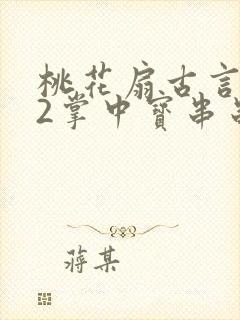 桃花扇古言
2掌中寳串
蔣某